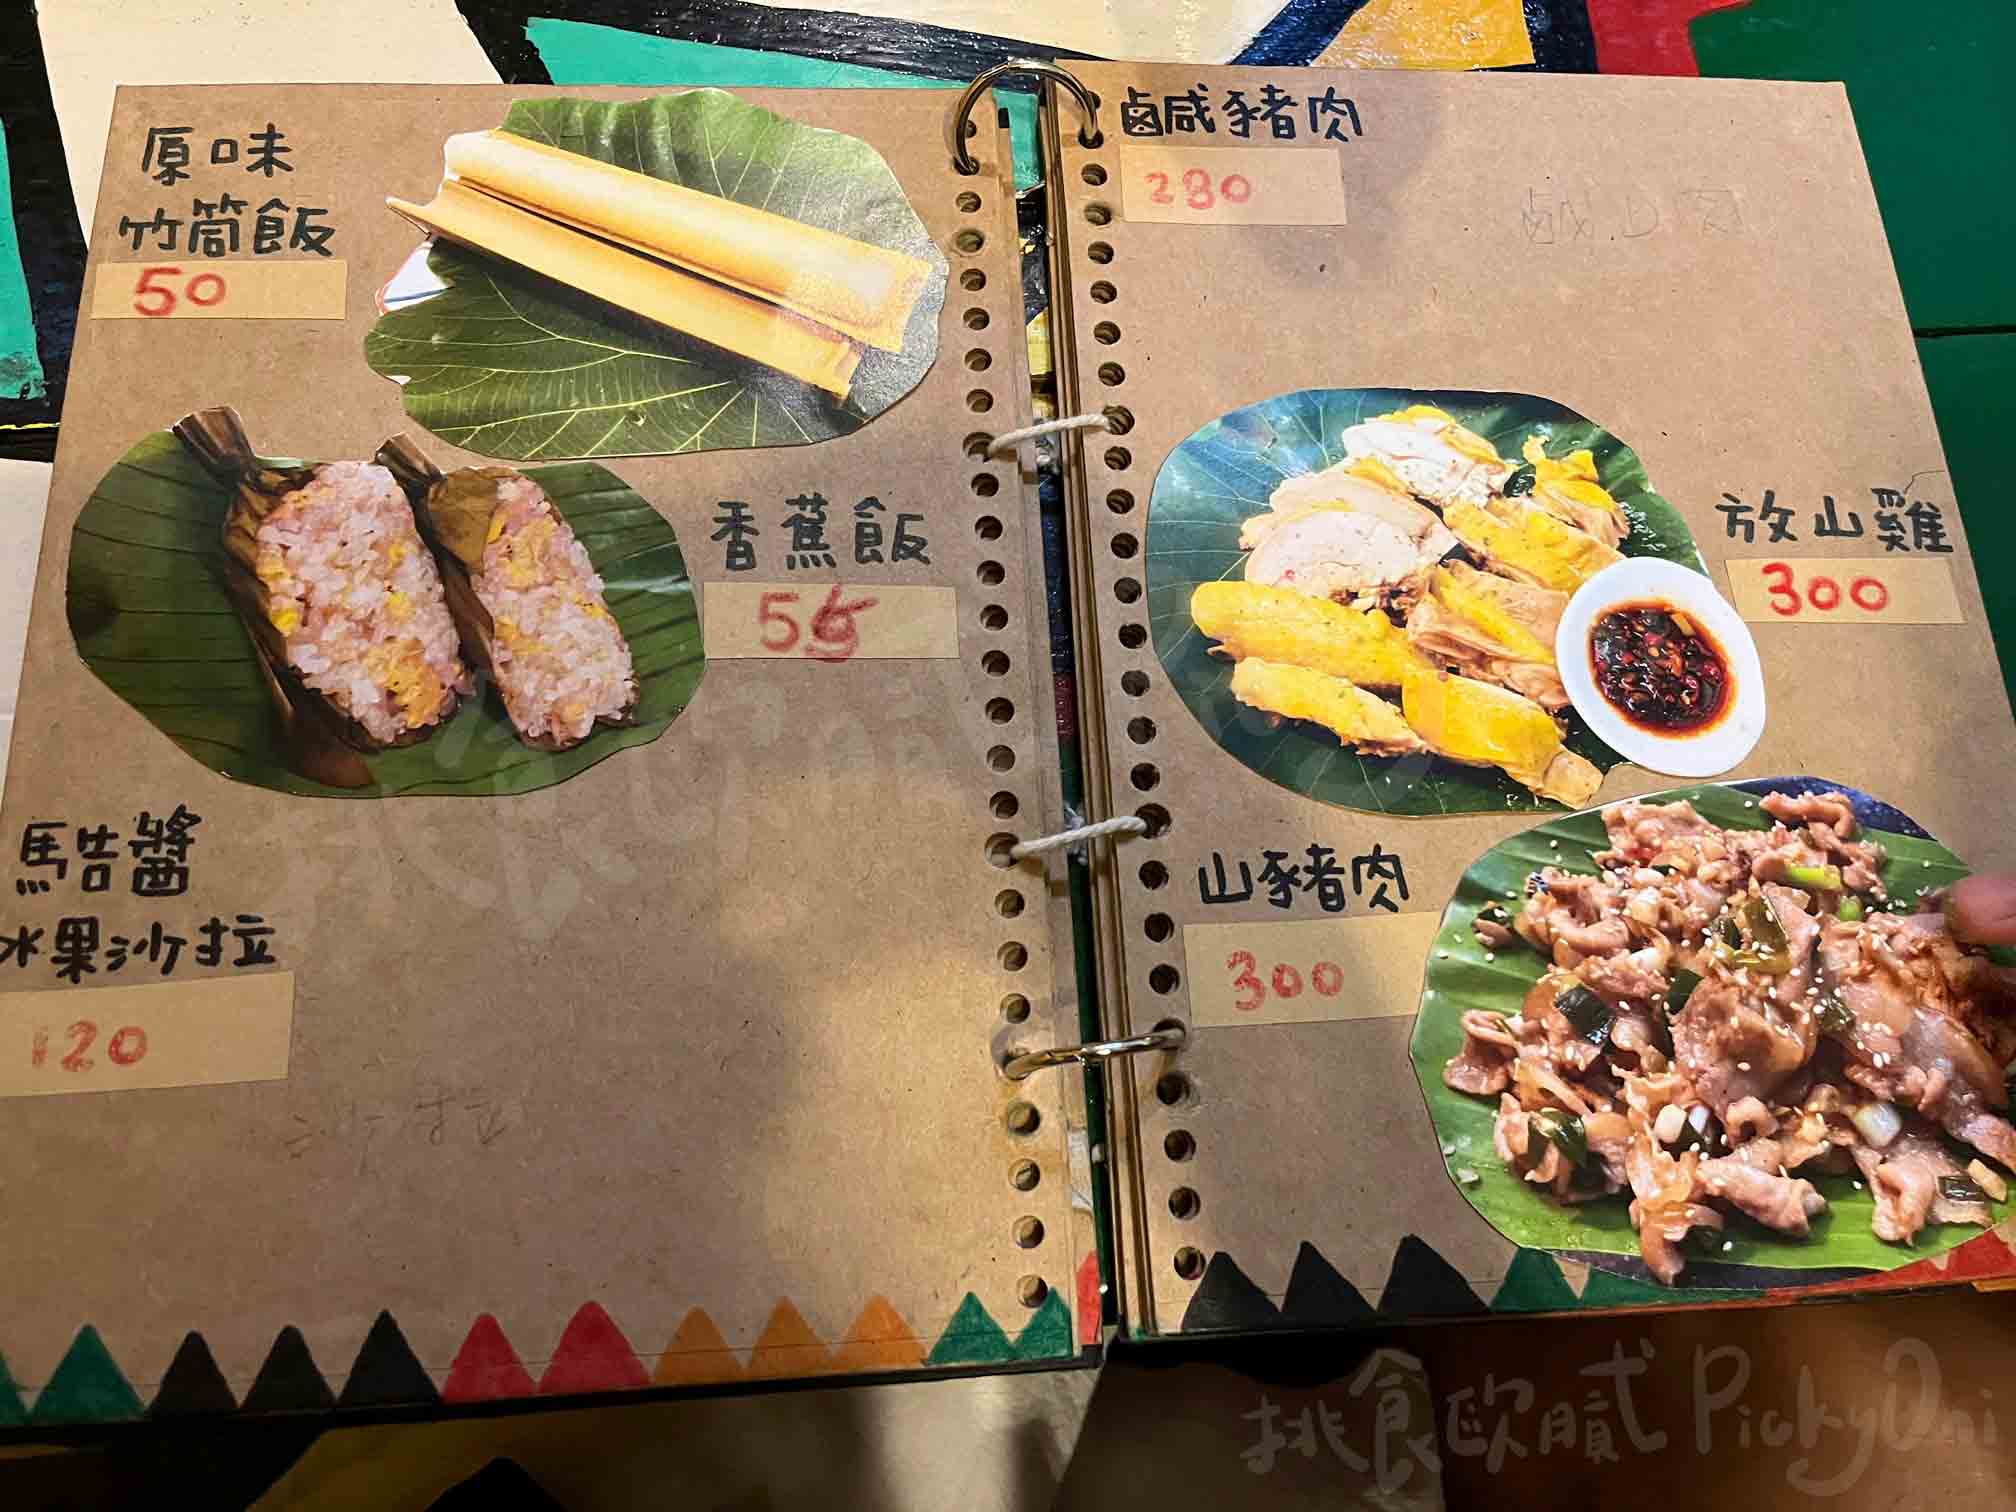 原味
竹筒飯
50
香蕉飯
55
馬告醬
水果沙拉
120
沙拉
鹹豬肉
280
放山雞
300
山豬肉
300
挑食歐膩 PickyOni